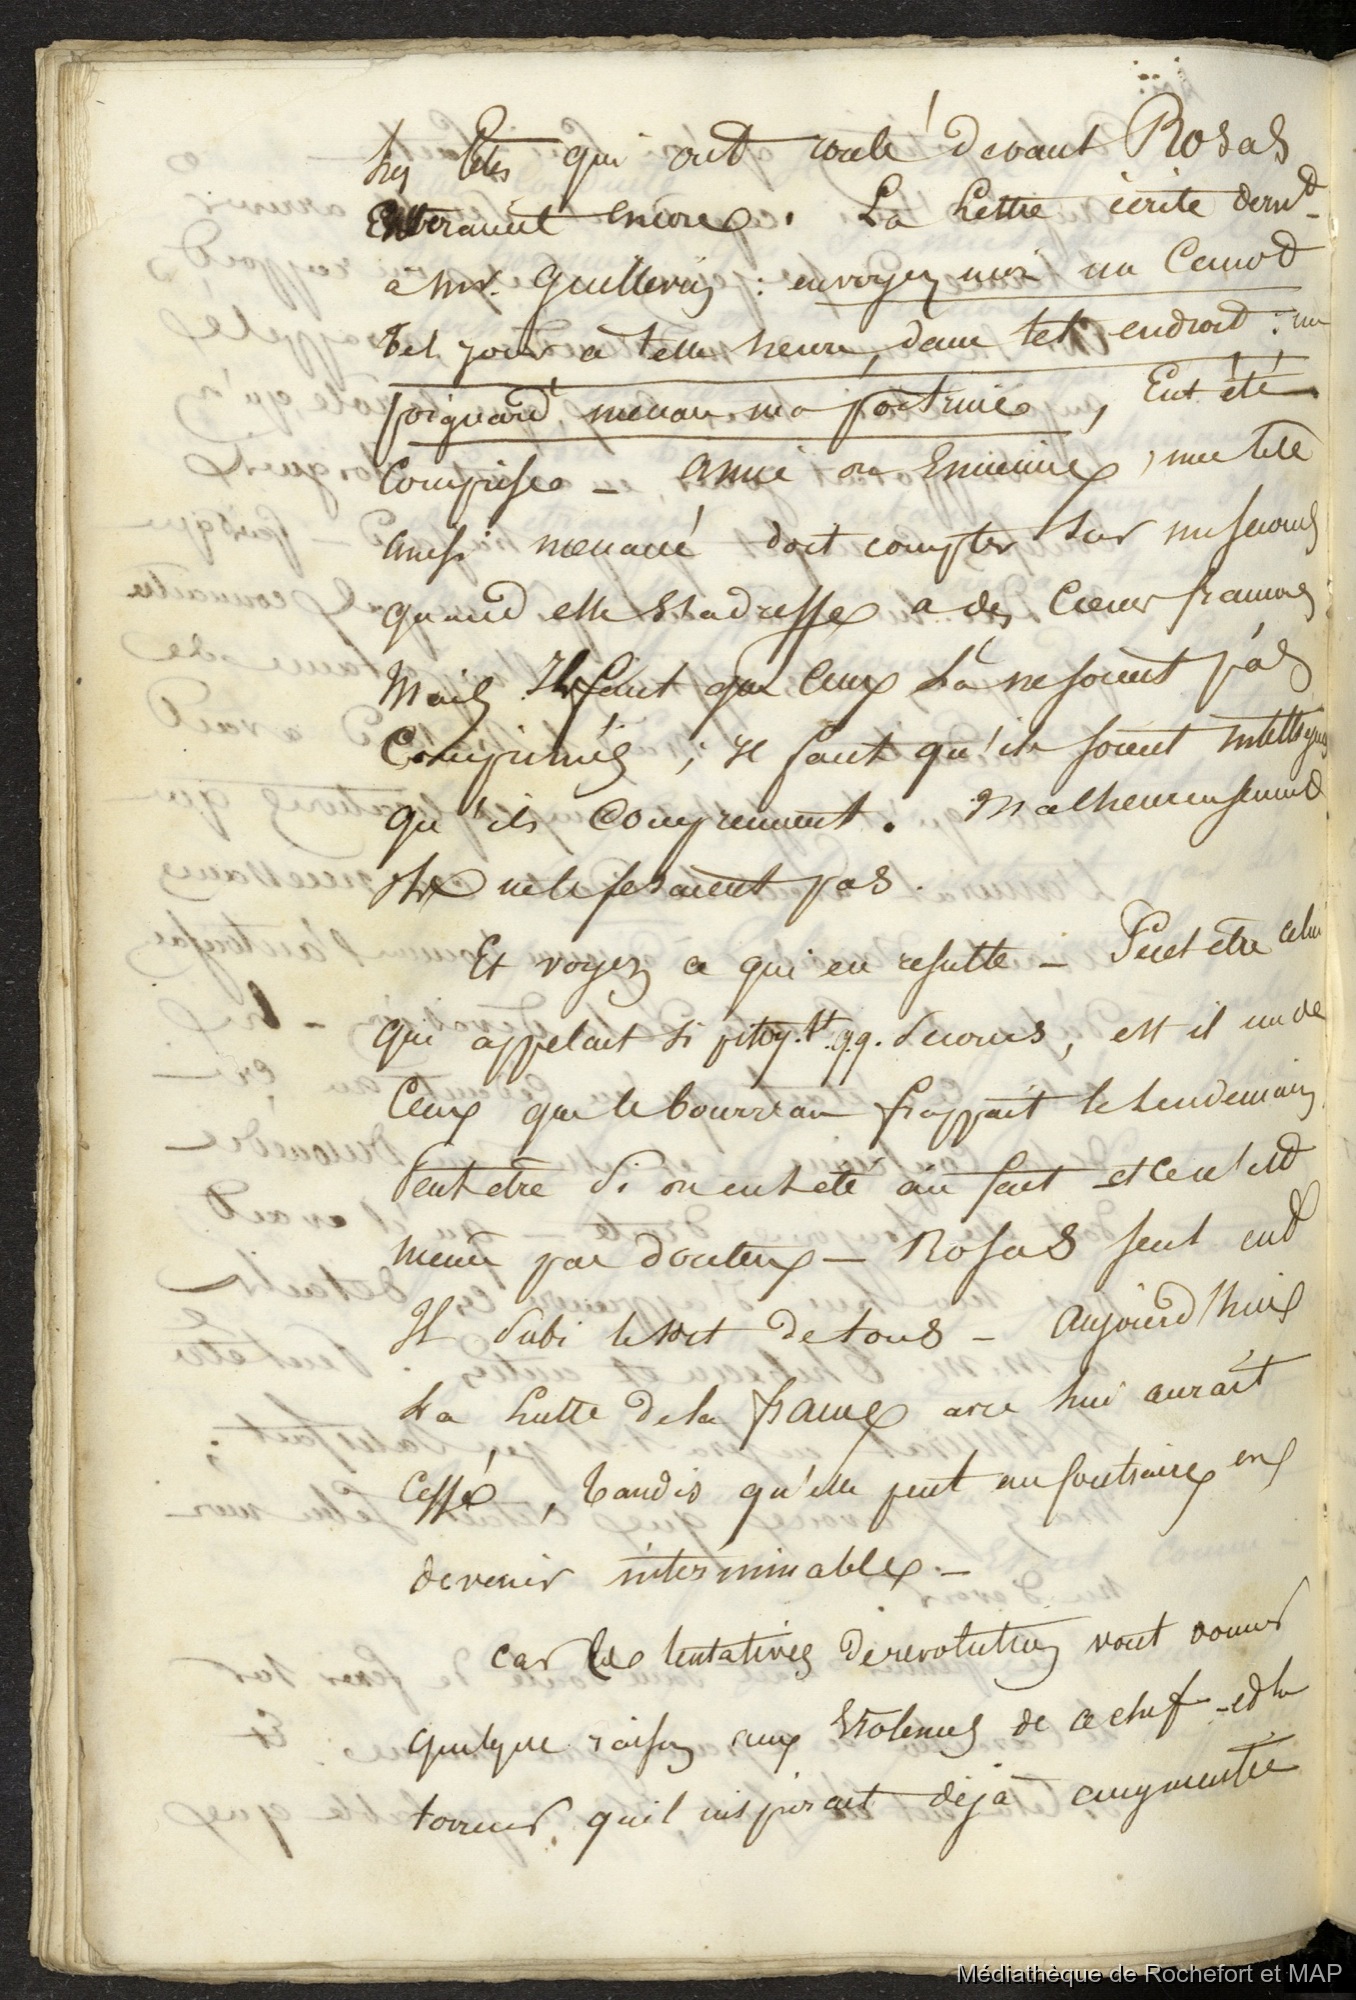 les têtes qui ont roulé devant Rosas
Existeraient encore. La Lettre écrite dernt
à Mr. Guillerin : envoyez moi un Canot
tel jour à telle heure, dans tel endroit : un
poignard menace ma poitrine, Eut été
Comprise – amie ou Ennemie, une tête
ainsi menacée doit compter sur un secours
quand elle s'adresse a des Coeurs francais
Mais Il faut que Ceux là ne soient pas
Comprimés ; il faut qu'ils soient intelligens
qu'ils Comprennent. Malheureusement
Ils ne le fesaient pas.
Et voyez ce qui en resulte – Peut etre celui
qui appelait si pitoy.t q.q. secours, est il un de
Ceux que le bourreau frappait le lendemain
Peut etre si on eut eté au fait et ce n'est
meme pas douteux – Rosas seul eut
Il subi le sort de tous – aujourd'hui
La Lutte de la france avec lui aurait
Cessé, tandis qu'elle peut au Contraire en
devenir interminable. –
Car les tentatives de revolution vont donner
quelque raison aux Violences de ce chef et la
terreur qu'il inspirait déjà augmentée
Médiathèque de Rochefort et MAP